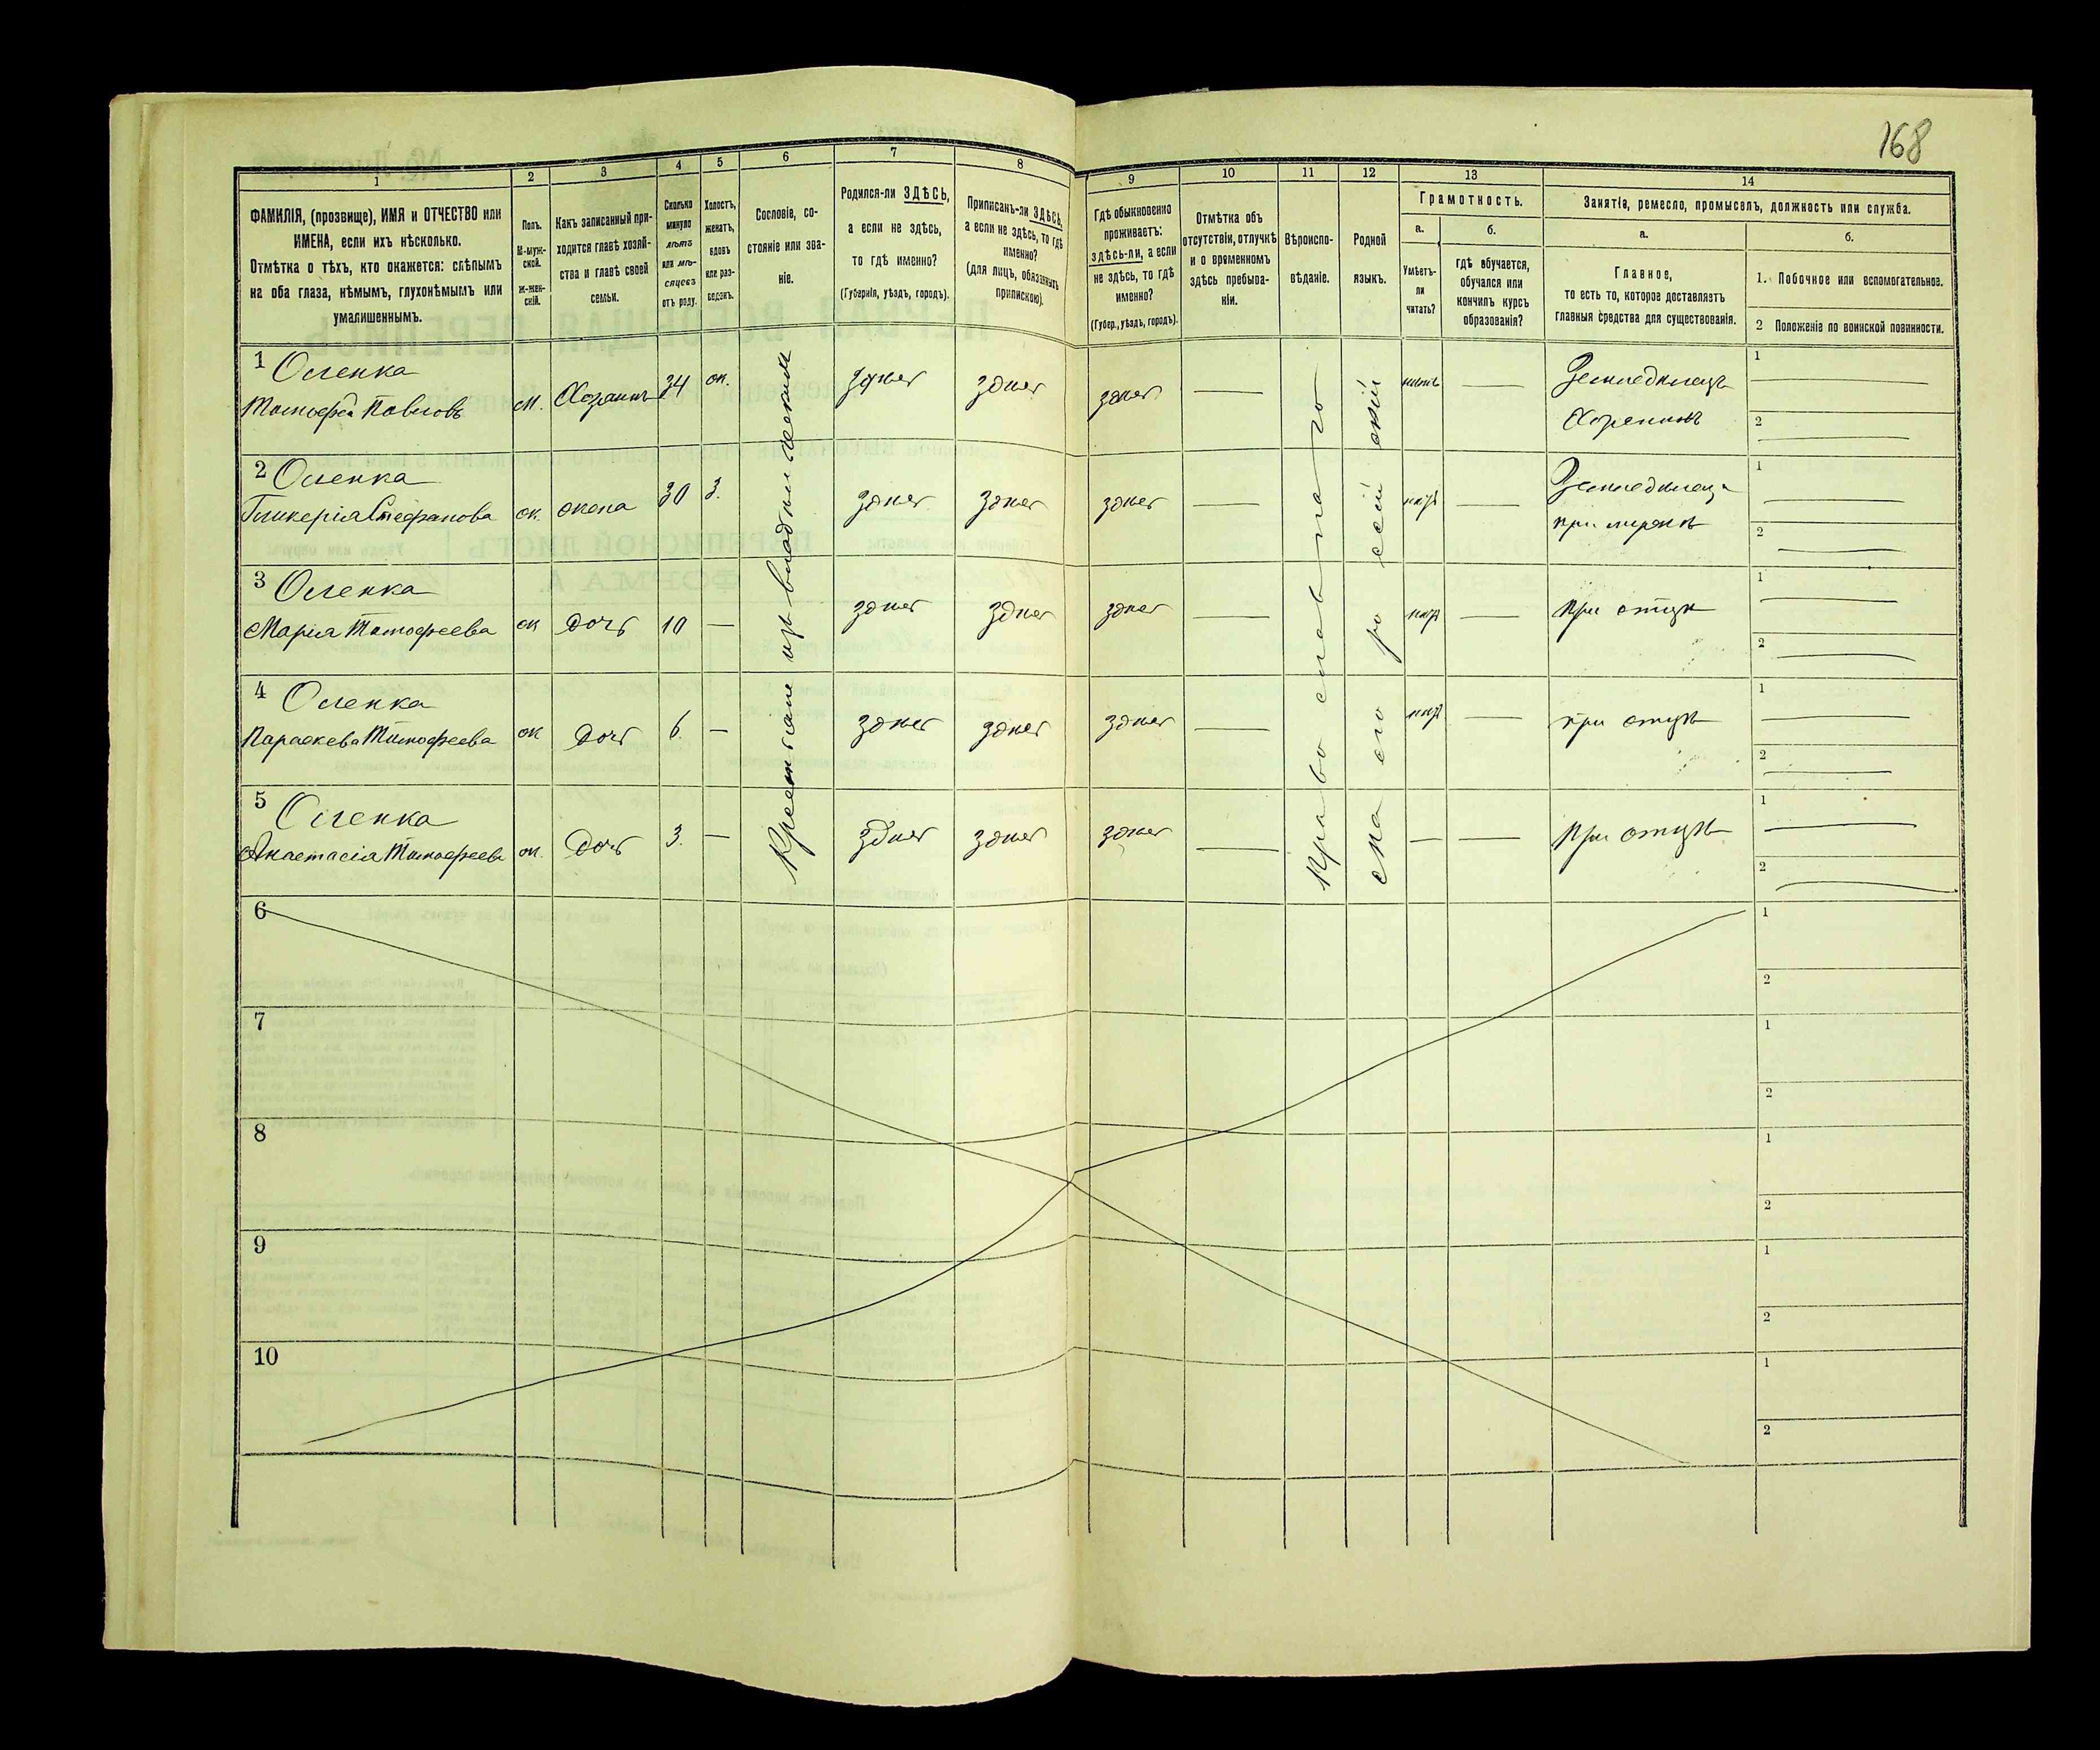 168
1
2
3
4
5
6
7
8
9
10
11
12
13
14
ФАМИЛІЯ, (прозвище), ИМЯ и ОТЧЕСТВО или
ИМЕНА, если ихъ нѣсколько.
Отмѣтка о тѣхъ, кто окажется: слѣпымъ
на оба глаза, нѣмымъ, глухонѣмымъ или
умалишеннымъ.
Полъ.
М-муж-
ской.
Ж-жен-
скій.
Какъ записанный при-
ходится главѣ хозяй-
ства и главѣ своей
семьи.
Сколько
минуло
лѣтъ
или мѣ-
сяцевъ
отъ роду.
Холостъ,
женатъ,
вдовъ
или раз-
веденъ.
Сословіе, со-
стояніе или зва-
ніе.
Родился-ли ЗДѢСЬ,
а если не здѣсь,
то гдѣ именно?
(Губернія, уѣздъ, городъ).
Приписанъ-ли ЗДѢСЬ,
а если не здѣсь, то гдѣ
именно?
(для лицъ, обязанныхъ
припискою).
Гдѣ обыкновенно
проживаетъ:
ЗДѢСЬ-ЛИ, а если
не здѣсь, то гдѣ
именно?
(Губер., уѣздъ, городъ).
Отмѣтка объ
отсутствіи, отлучкѣ
и о временномъ
здѣсь пребыва-
ніи.
Вѣроиспо-
вѣданіе.
Родной
языкъ.
Грамотность.
а.
Умѣетъ-
ли
читать?
б.
гдѣ обучается,
обучался или
кончилъ курсъ
образованія?
Занятіе, ремесло, промыселъ, должность или служба.
а.
Главное,
то есть то, которое доставляетъ
главныя средства для существованія.
б.
1. Побочное или вспомогательное.
2 Положеніе по воинской повинности.
Крестьяне изъ владѣльческихъ
Православнаго
ско его россій скій
1 Оленка
Тимофей Павловъ м. Хозяинъ 34 ж. здѣсь здѣсь здѣсь — — 1
Земледѣлецъ
Хозяинъ 2
2 Оленка
Гликерія Стефанова ж. жена 30 з. здѣсь здѣсь здѣсь — — 1
при мужѣ 2
3 Оленка
Марія Тимофеева ж дочь 10 — здѣсь здѣсь здѣсь — — при отцѣ 1
2
4 Оленка
Параскева Тимофеева ж дочь 6 — здѣсь здѣсь здѣсь — — при отцѣ 1
2
5 Оленка
Анастасія Тимофеева ж. дочь 3. — здѣсь здѣсь здѣсь — — — при отцѣ 1
2
6 1
2
7 1
2
8 1
2
9 1
2
10 1
2